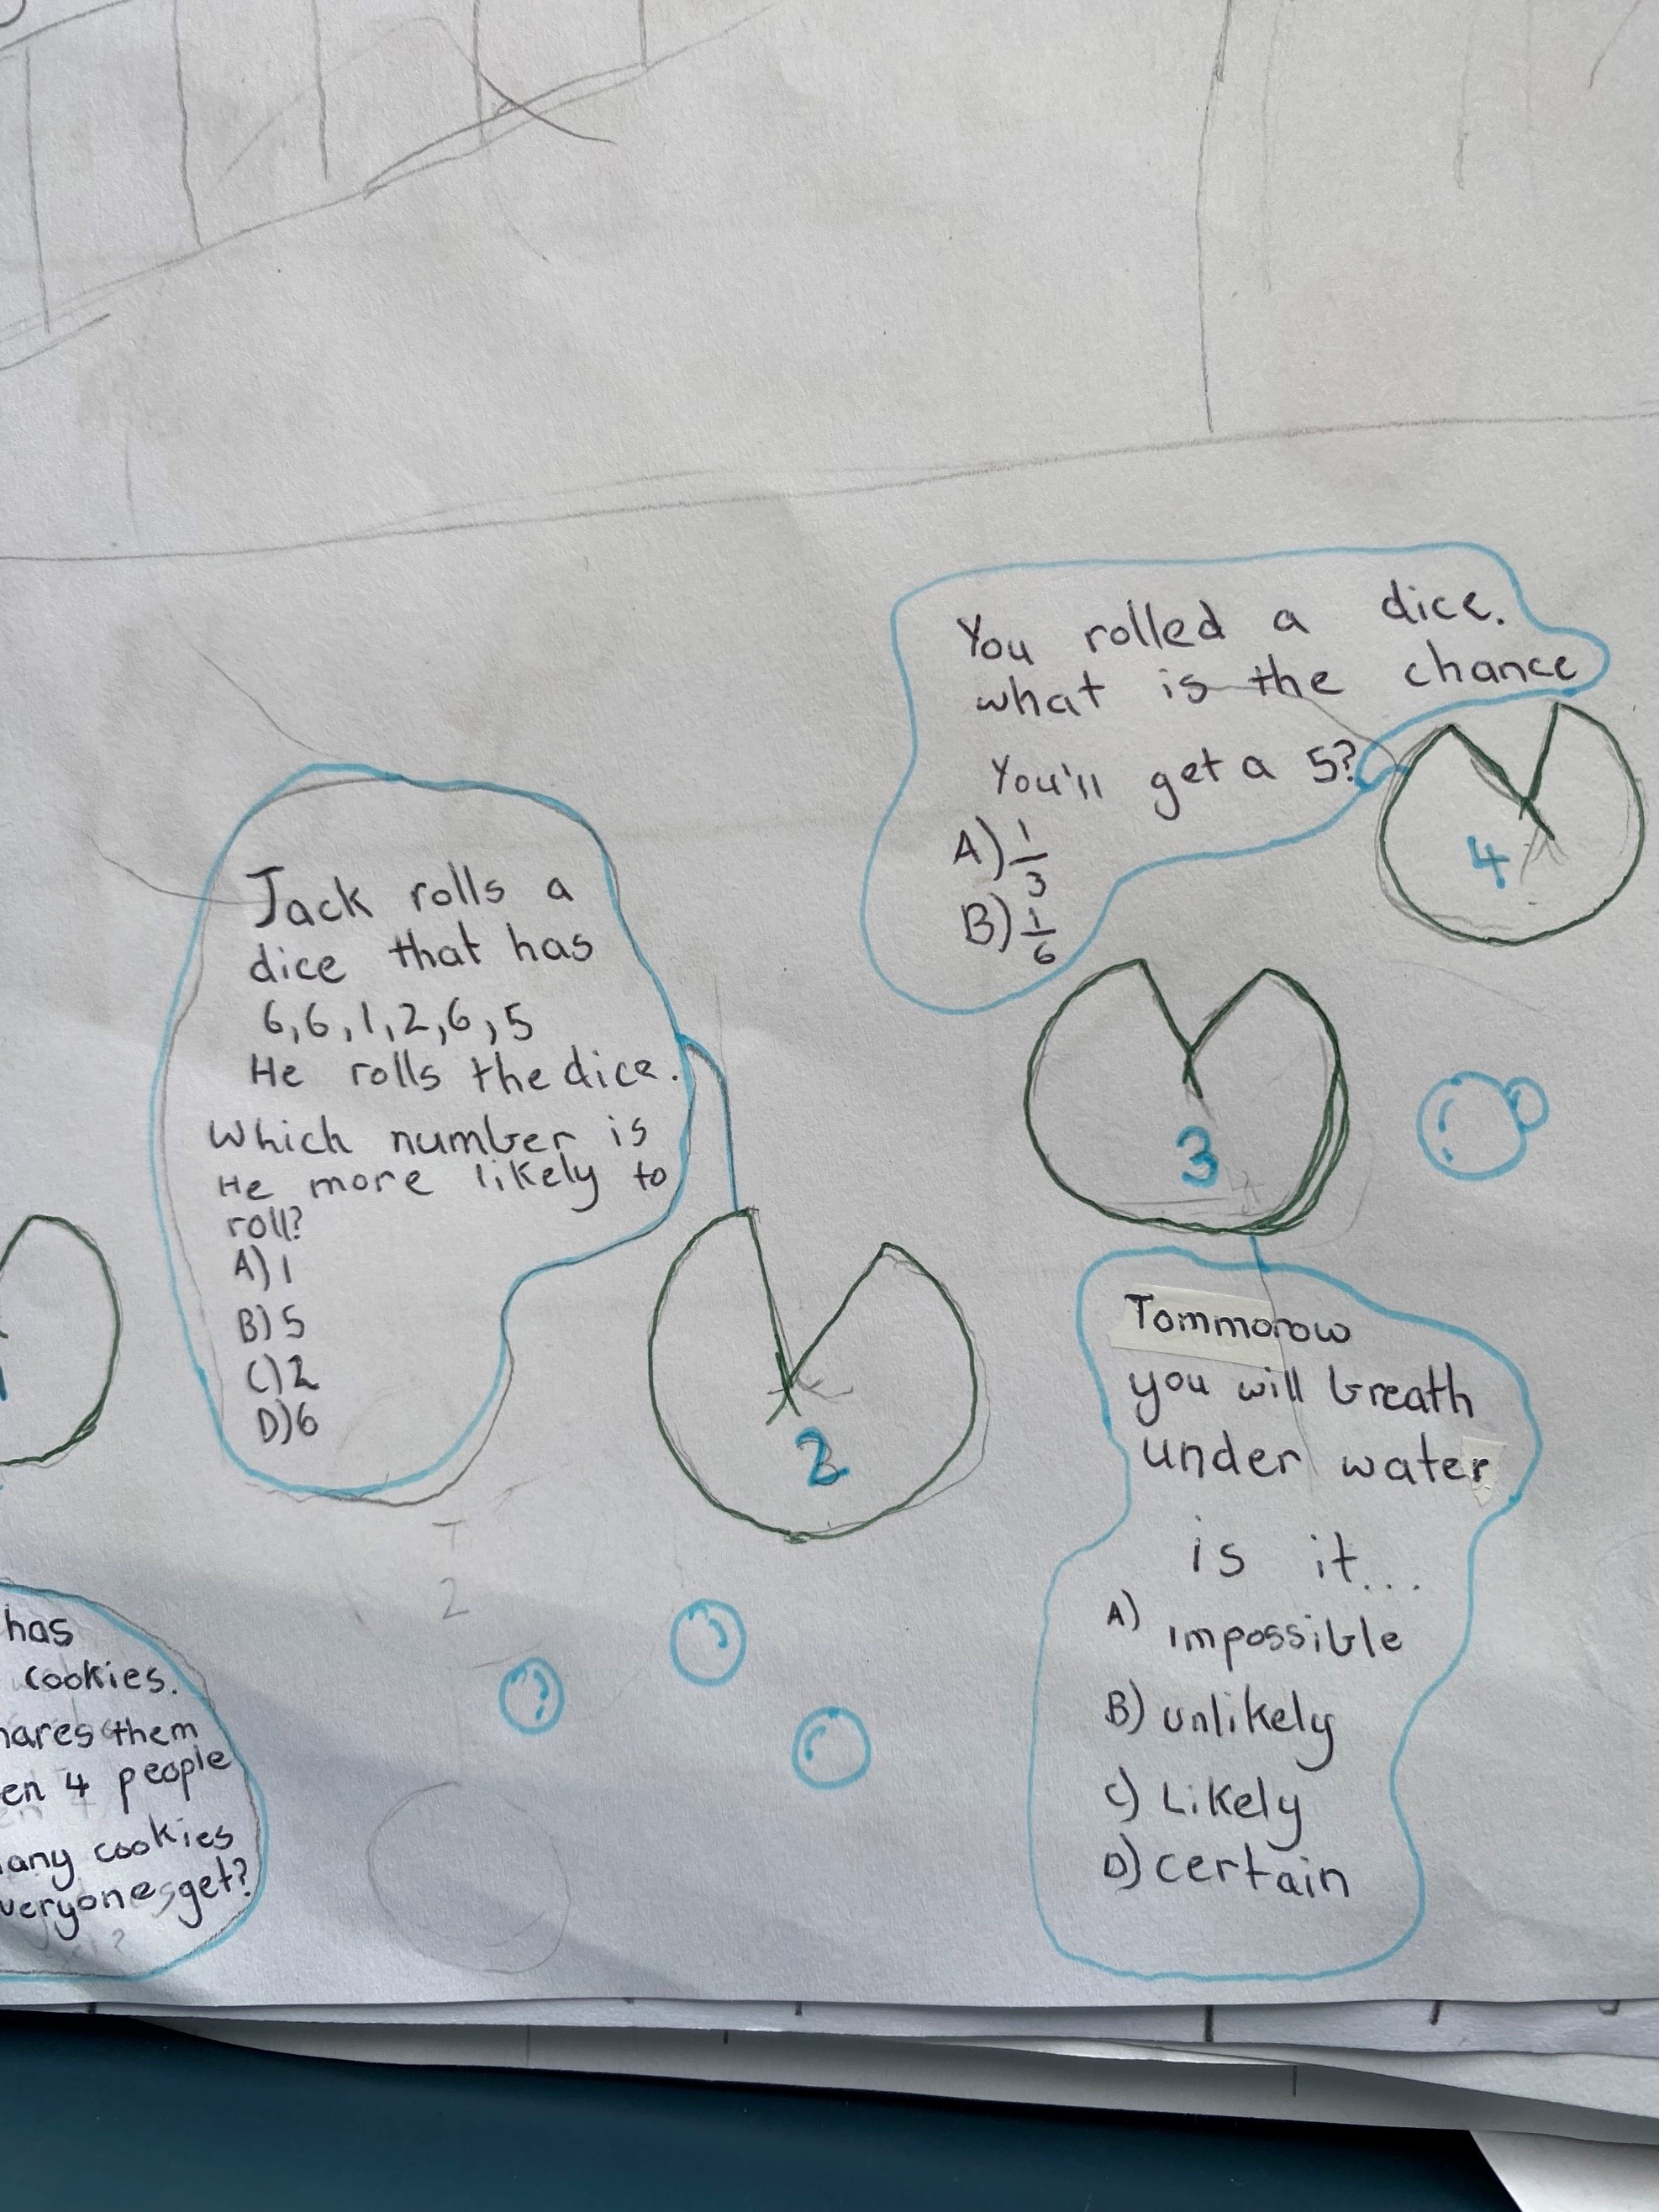 You rolled a dice.
what is the chance
You'll get a 5?
A) 1/3
B) 1/6
4
Jack rolls a
dice that has
6,6,1,2,6,5
He rolls the dice.
Which number is
He more likely to
roll?
A) 1
B) 5
C) 2
D) 6
2
3
Tommorow
you will breath
under water
is it...
A) impossible
B) unlikely
C) Likely
D) certain
has
cookies.
hares them
en 4 people
any cookies
veryone get?
2